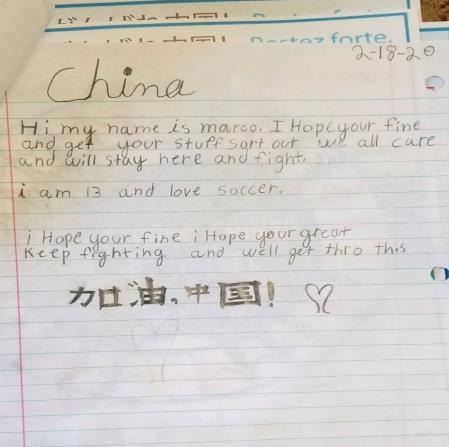 Portez forte.
2-18-20
China
Hi my name is marco. I Hope your fine
and get your stuff sort out we all care
and will stay here and fight.
i am 13 and love soccer.
i Hope your fine i Hope your great
Keep fighting and we'll get thro this
加油,中国! ♡